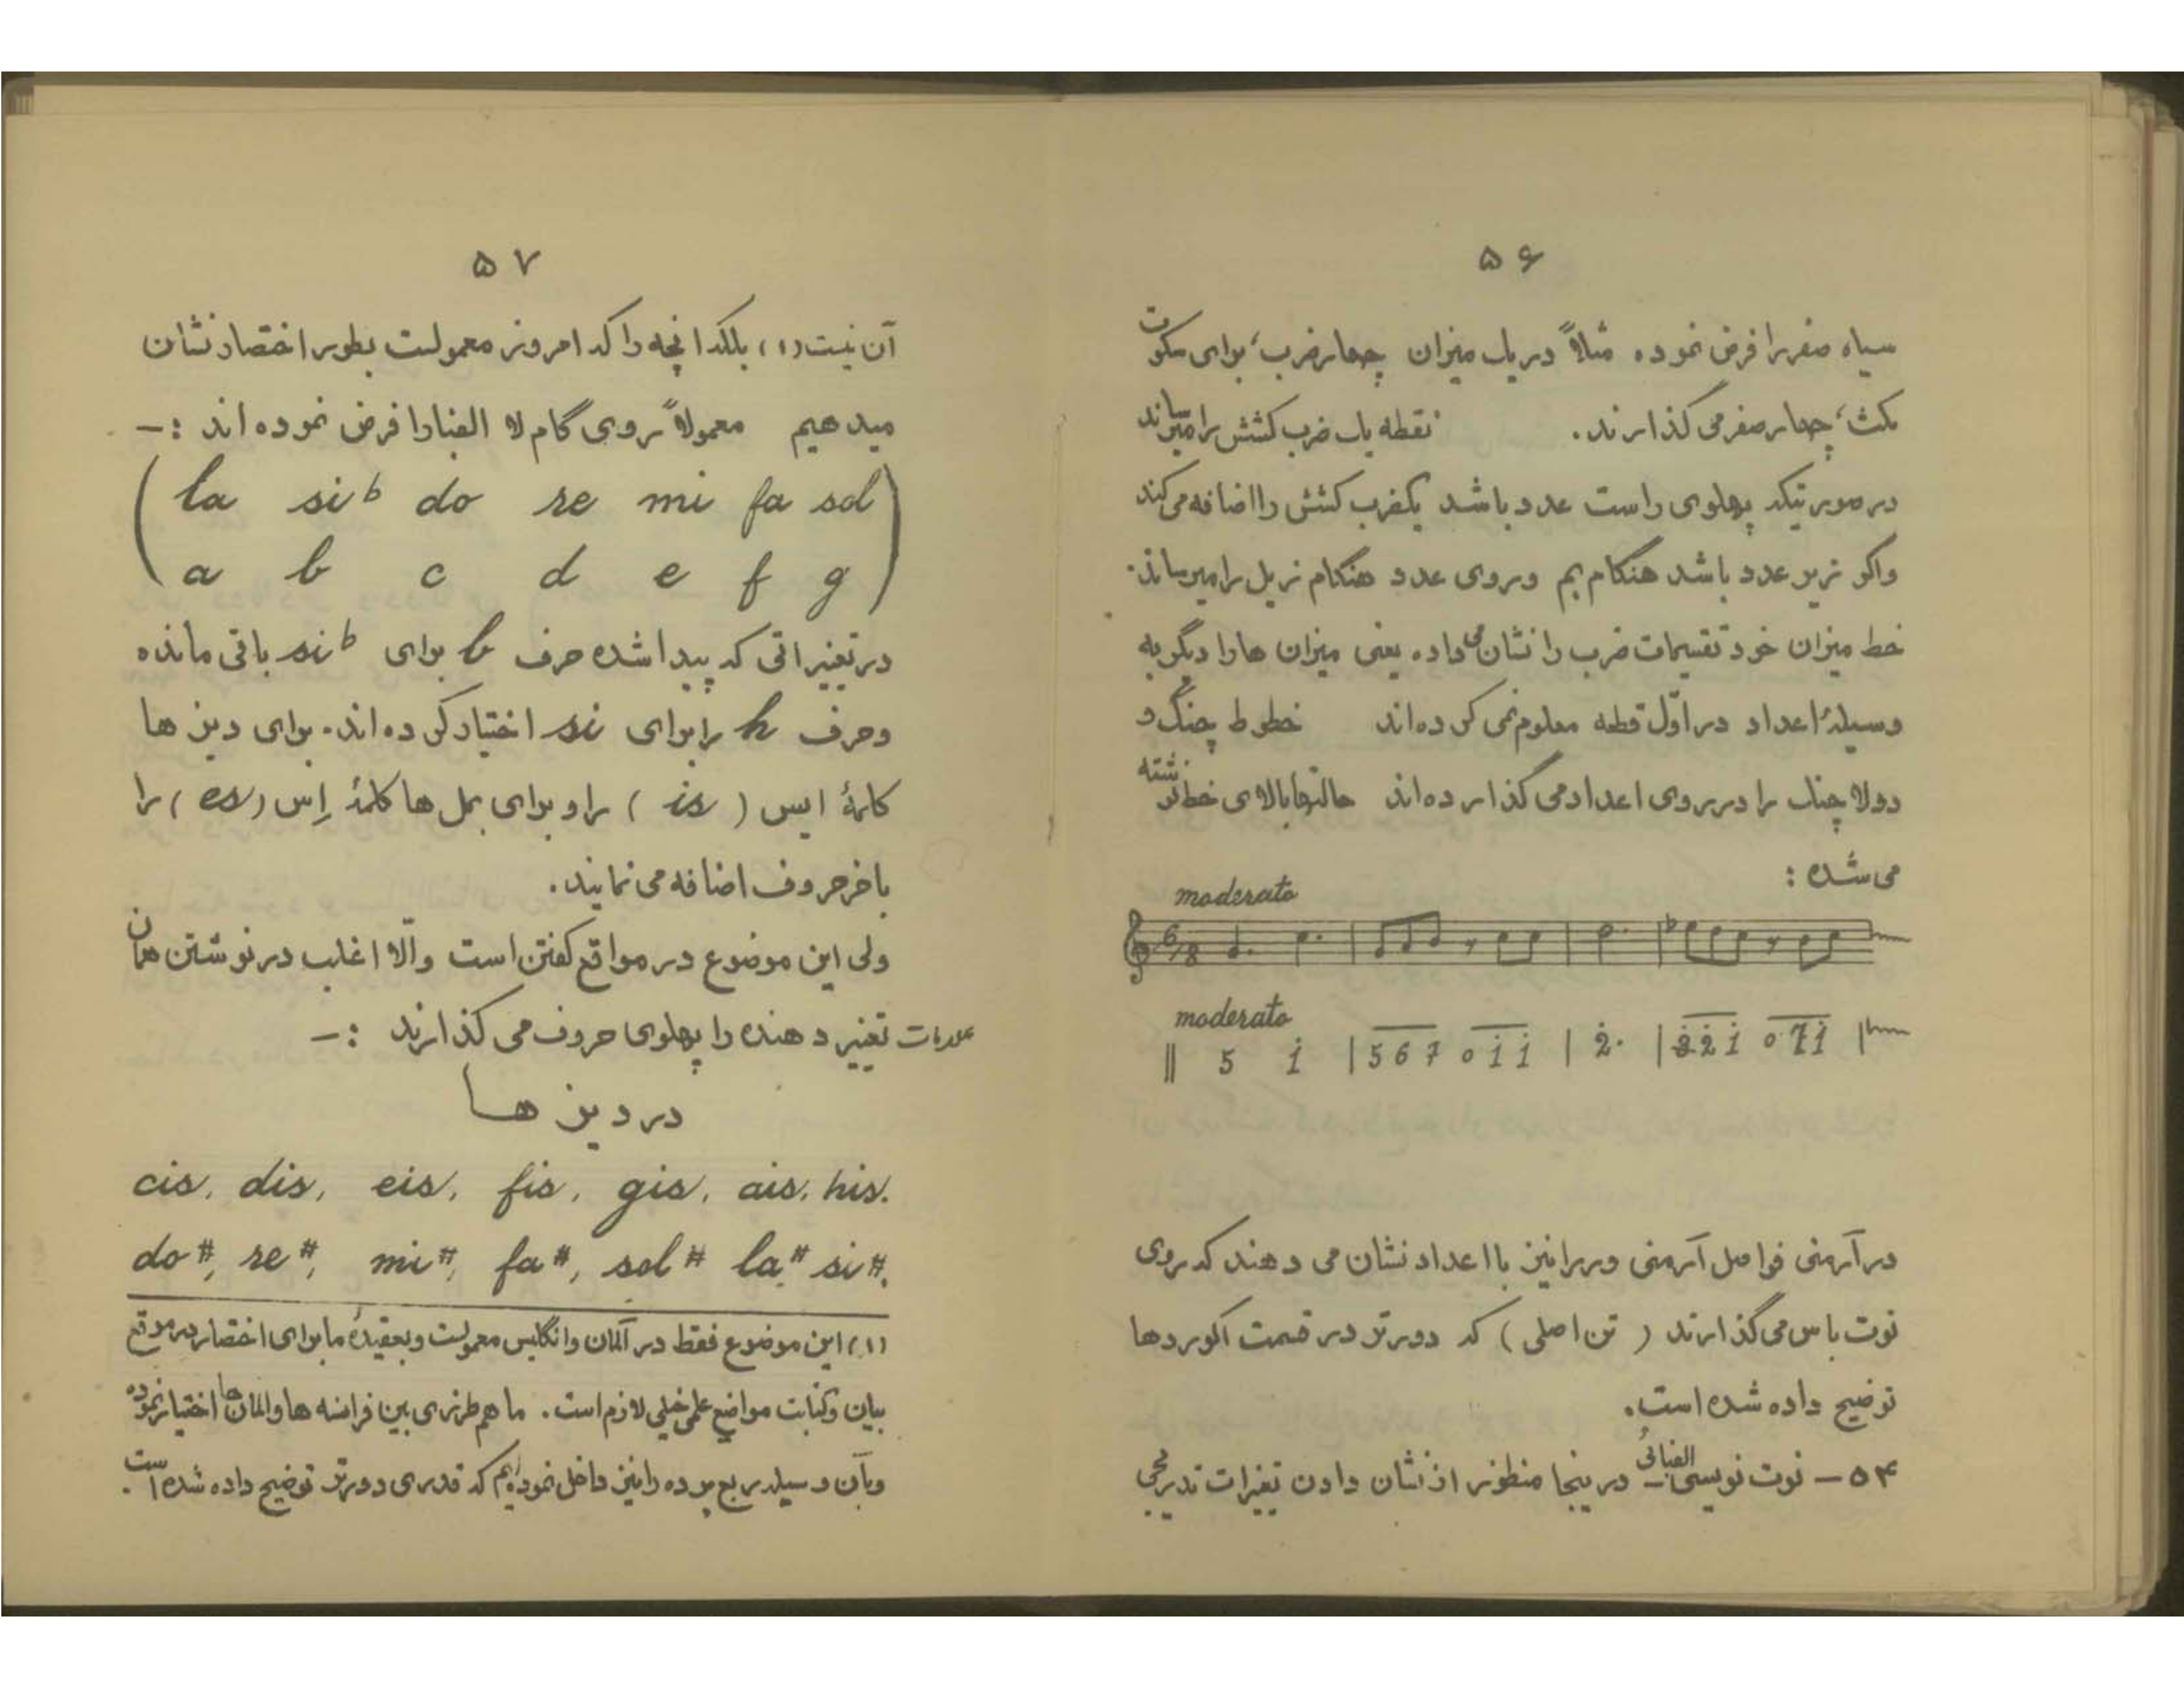 ۵۶
سیاه صفر را فرض نموده مثلاً در یک میزان چهار ضرب، برای سکوت
مکث، چهار صفر می گذارند. نقطه یک ضرب کشش را میرساند
در صورتیکه پهلوی راست عدد باشد یکضرب کشش را اضافه می کند
واگر زیر عدد باشد هنگام بم و روی عدد هنگام زیل را میرساند.
خط میزان خود تقسیمات ضرب را نشان می داده یعنی میزان ها را دیگر به
وسیلهٔ اعداد در اوّل قطعه معلوم نمی کرده اند خطوط چنگ و
دولا چنگ را در بروی اعداد می گذارده اند حالتها بالای خط نوشته
می شده :
moderato
6/8
moderato
|| 5 i | 5 6 7 0 i i | 2. | 3 2 i 0 7 i |
در آرمنی فواصل آرمنی ور را نیز با اعداد نشان می دهند که روی
نوت باس می گذارند ( تن اصلی ) که دورتر در قسمت اکوردها
توضیح داده شده است.
۵۴ – نوت نویسی الفبائی – در ینجا منظور از نشان دادن تغیرات تدریجی
۵۷
آن نیست (۱) ، بلکه انچه را که امروز معمولست بطور اختصار نشان
میدهیم معمولاً روی گام لا الفبا را فرض نموده اند :–
la si♭ do re mi fa sol
a b c d e f g
در تغییراتی که پیدا شده حرف b برای si♭ باقی مانده
وحرف h را برای si اختیار کرده اند. برای دیز ها
کلمهٔ ایس ( is ) را و برای بمل ها کلمهٔ اِس ( es ) را
باخر حروف اضافه می نمایند.
ولی این موضوع در مواقع گفتن است و الّا اغلب در نوشتن همان
علامات تغییر دهنده را پهلوی حروف می گذارند :–
در دیز ها
cis, dis, eis, fis, gis, ais, his.
do#, re#, mi#, fa#, sol# la# si#.
(۱) این موضوع فقط در آلمان و انگلیس معمولست وبعقیدهٔ ما برای اختصار در موقع
بیان وکتابت مواضع علمی خیلی لازم است. ما هم طرزی بین فرانسه ها و المان ها اختیار نموده
وبآن وسیله ربع پرده را نیز داخل نموده ایم که قدری دورتر توضیح داده شده است.